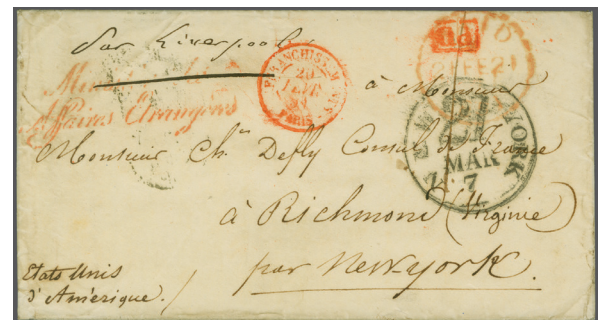 Par Liverpool
PD
PAID
21 FE 21
Ministère des
Affaires Etrangères
FRANCHISE M
20
PARIS
NEW YORK
21
MAR
7
à Monsieur
Monsieur Chs Defly Consul de France
à Richmond (Virginie)
par New-york.
Etats Unis
d'Amérique.